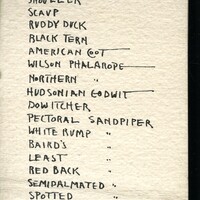 SHOVELER
SCAUP
RUDDY DUCK
BLACK TERN
AMERICAN COOT
WILSON PHALAROPE
NORTHERN "
HUDSONIAN GODWIT
DOWITCHER
PECTORAL SANDPIPER
WHITE RUMP "
BAIRD'S "
LEAST "
RED BACK "
SEMIPALMATED "
SPOTTED "